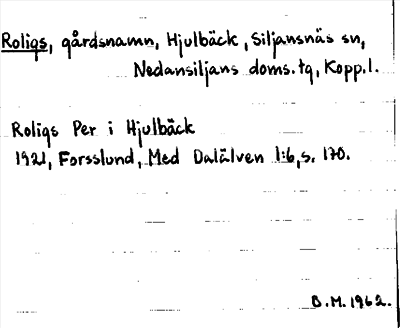 Roligs, gårdsnamn, Hjulbäck, Siljansnäs sn,
Nedansiljans doms.tg, Kopp.l.
Roligs Per i Hjulbäck
1921, Forsslund, Med Dalälven 1:6, s. 170.
B.M. 1962.